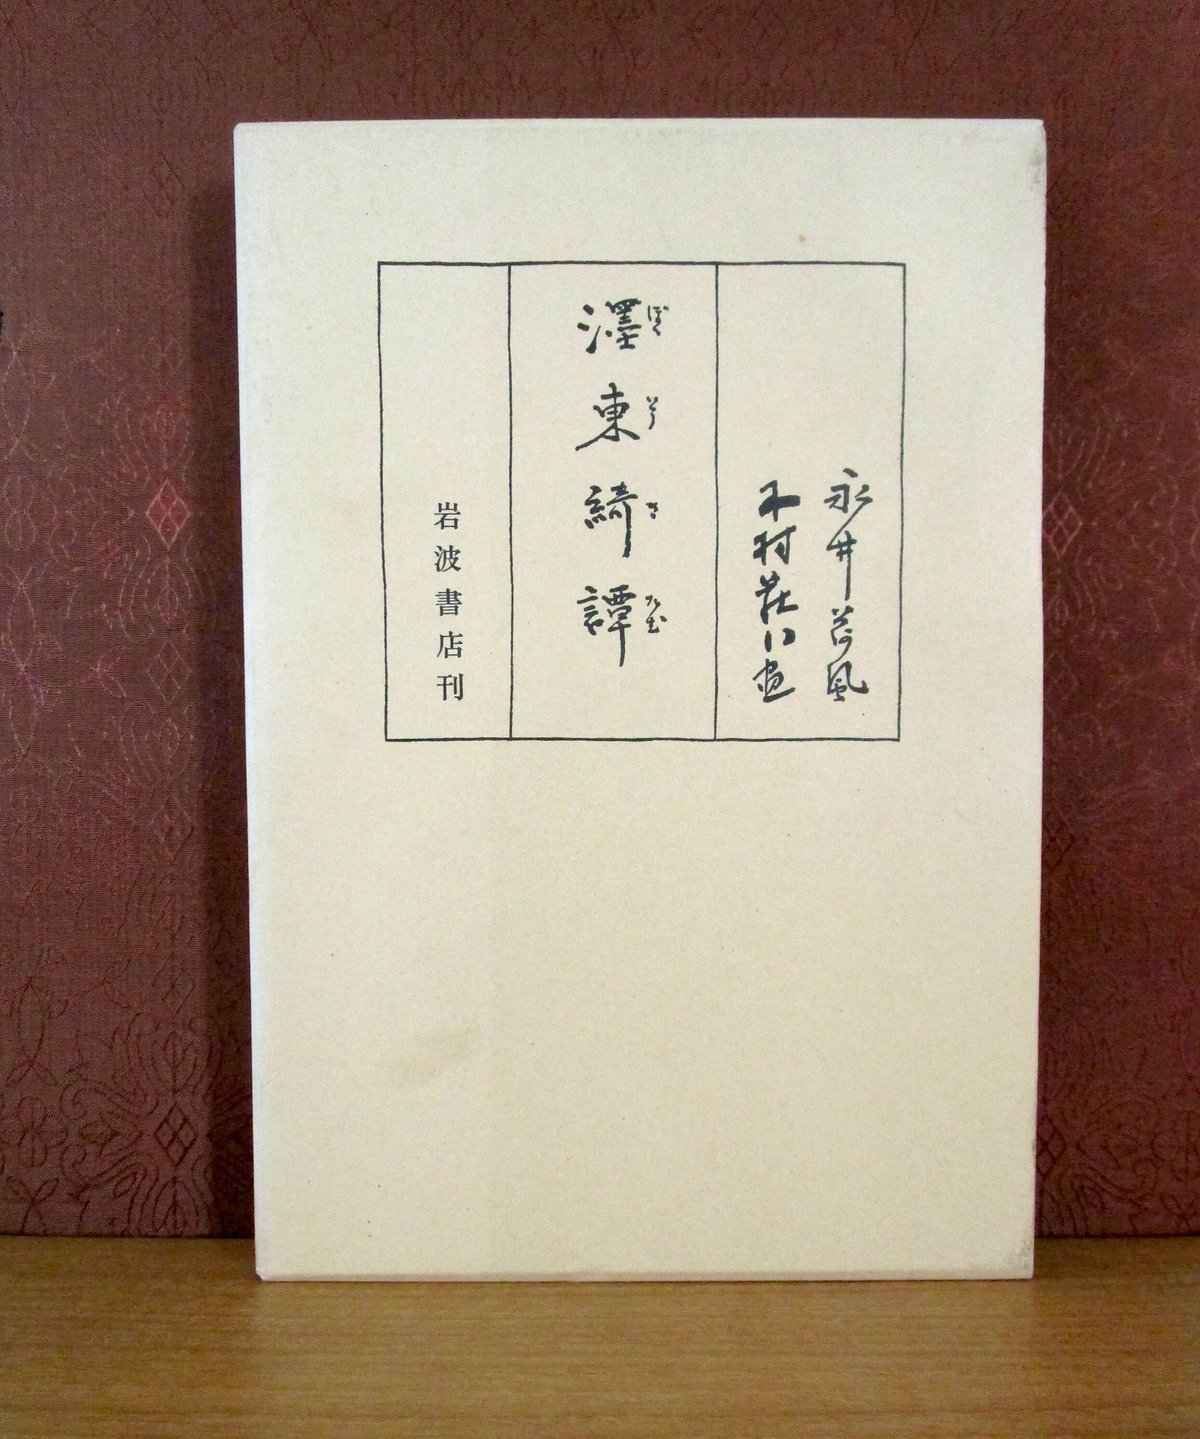 永井荷風
木村荘八画
濹東綺譚
ぼくとうきだむ
岩波書店刊